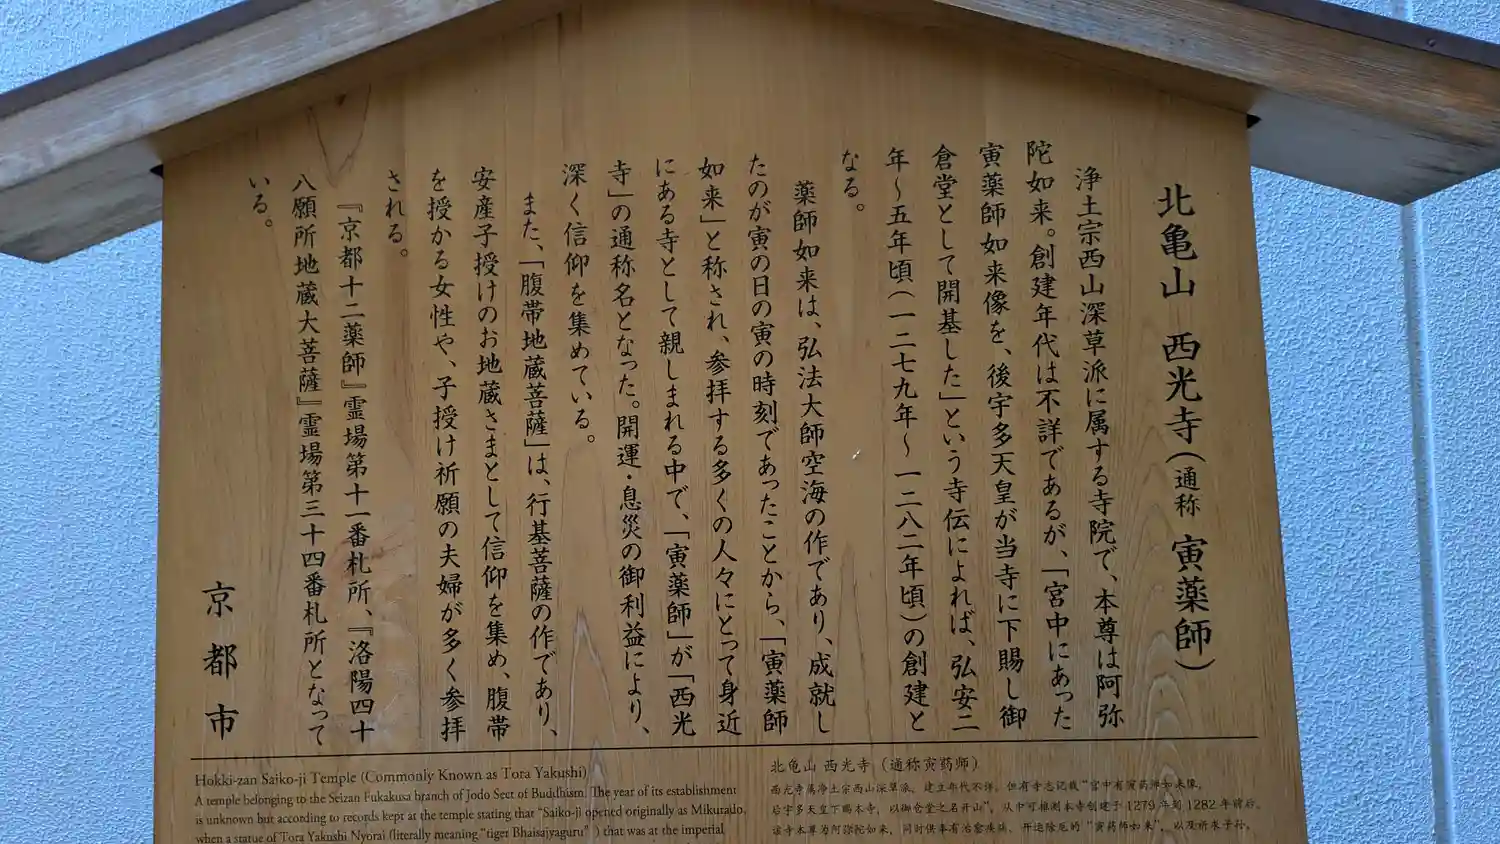 北亀山 西光寺(通称 寅薬師)
浄土宗西山深草派に属する寺院で、本尊は阿弥
陀如来。創建年代は不詳であるが、「宮中にあった
寅薬師如来像を、後宇多天皇が当寺に下賜し御
倉堂として開基した」という寺伝によれば、弘安二
年~五年頃(一二七九年~一二八二年頃)の創建と
なる。
薬師如来は、弘法大師空海の作であり、成就し
たのが寅の日の寅の時刻であったことから、「寅薬師
如来」と称され、参拝する多くの人々にとって身近
にある寺として親しまれる中で、「寅薬師」が「西光
寺」の通称名となった。開運・息災の御利益により、
深く信仰を集めている。
また、「腹帯地蔵菩薩」は、行基菩薩の作であり、
安産子授けのお地蔵さまとして信仰を集め、腹帯
を授かる女性や、子授け祈願の夫婦が多く参拝
される。
『京都十二薬師』霊場第十一番札所、『洛陽四十
八願所地蔵大菩薩』霊場第三十四番札所となって
いる。
京都市
Hokki-zan Saiko-ji Temple (Commonly Known as Tora Yakushi)
A temple belonging to the Seizan Fukakusa branch of Jodo Sect of Buddhism. The year of its establishment
is unknown but according to records kept at the temple stating that “Saiko-ji opened originally as Mikurado,
when a statue of Tora Yakushi Nyorai (literally meaning “tiger Bhaisajyaguru” ) that was at the imperial
北龟山 西光寺（通称寅药师）
西光寺属净土宗西山深草派，建立年代不详，但有寺志记载“宫中有寅药师如来像，
后宇多天皇下赐本寺，以御仓堂之名开山”，从中可推测本寺创建于1279年到1282年前后。
该寺本尊为阿弥陀如来，同时供奉有治愈疾病、开运除厄的“寅药师如来”，以及祈求子孙，